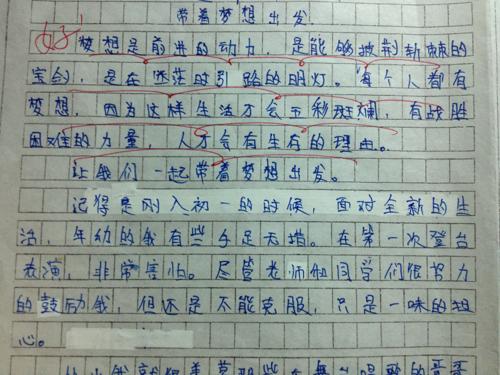 带着梦想出发.
好
梦想是前进的动力，是能够披荆斩棘的
宝剑，是在迷茫时引路的明灯。每个人都有
梦想，因为这样生活才会五彩斑斓，有战胜
困难的力量，人才会有生存的理由。
让我们一起带着梦想出发。
记得是刚入初一的时候，面对全新的生
活，年幼的我有些手足无措。在第一次登台
表演，非常害怕。尽管老师和同学们很努力
的鼓励我，但还是不能克服，只是一味的担
心。